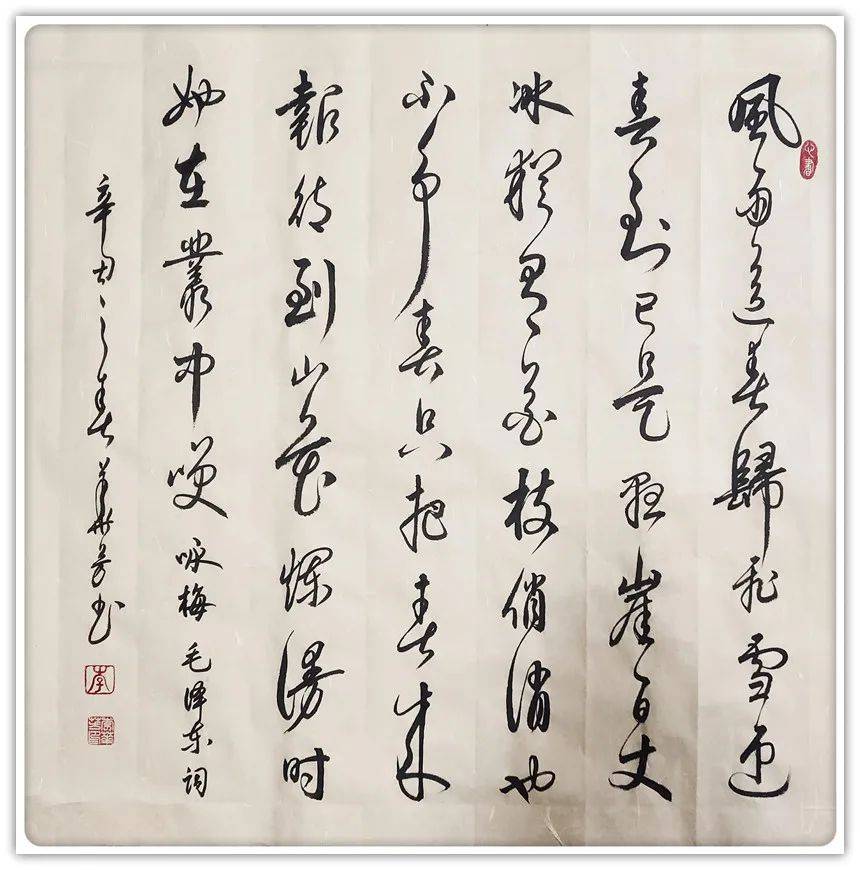 風雨送春歸飛雪迎
春到已是懸崖百丈
冰猶有花枝俏俏也
不争春只把春来
報待到山花爛漫时
她在叢中咲 咏梅 毛泽东词
辛丑之春華芳书
李